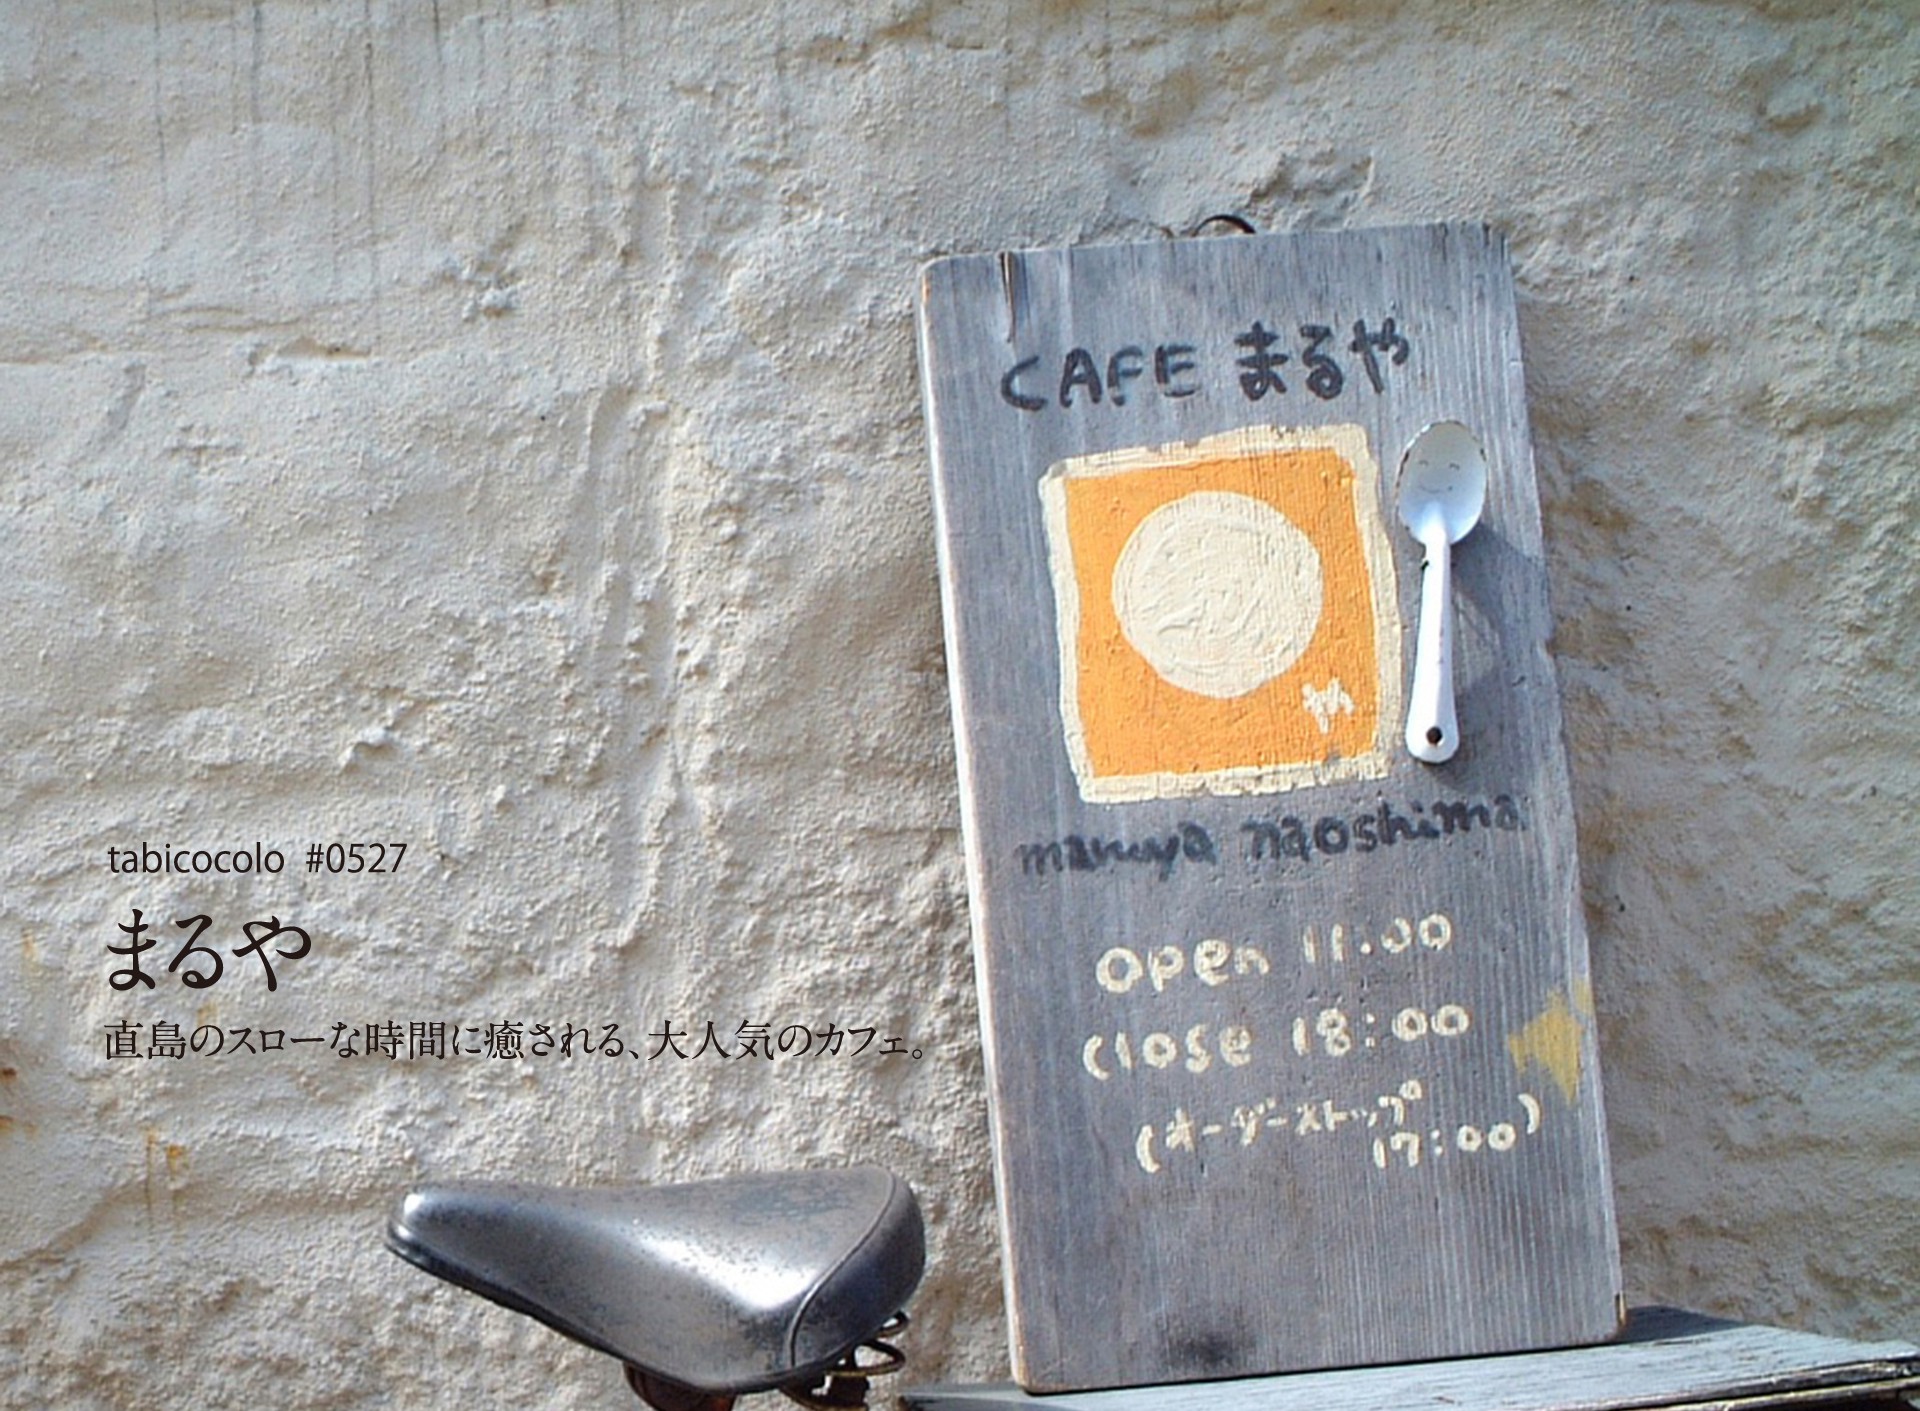 CAFE まるや
や
maruya naoshima
open 11:00
close 18:00
(オーダーストップ
17:00)
tabicocolo #0527
まるや
直島のスローな時間に癒される、大人気のカフェ。